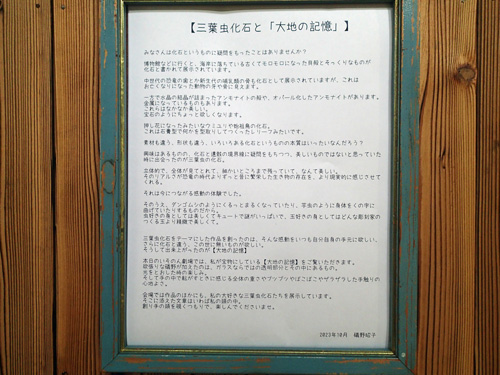 【三葉虫化石と「大地の記憶」】
みなさんは化石というものに疑問をもったことはありませんか？
博物館などに行くと、海岸に落ちている古くてボロボロになった貝殻とそっくりなものが
化石と書かれて展示されています。
中世代の恐竜の歯とか新生代の哺乳類の骨も化石として展示されていますが、これは
お亡くなりになった動物の牙や骨に見えます。
一方で水晶の結晶が詰まったアンモナイトの殻や、オパール化したアンモナイトがあります。
金属になっているものもあります。
これらはなかなか美しい。
宝石のようにちょっと欲しくなります。
押し花になったみたいなウミユリや始祖鳥の化石。
これは石膏型で何かを型取りしてつくったレリーフみたいです。
素材も違う、形状も違う、いろいろある化石というものの本質はいったいなんだろう？
興味はあるものの、化石と遺骸の境界線に疑問をもちつつ、美しいものではないと思っていた
時に出会ったのが三葉虫の化石。
立体的で、全体が見てとれて、細かいところまで残っていて、なんて美しい。
そのリアルさが恐竜の時代よりずっと昔に繁栄した生き物の存在を、より現実的に感じさせて
くれる。
それは今につながる感動の体験でした。
そのうえ、ダンゴムシのようにくるっとまるくなっていたり、芋虫のように身体をくの字に
曲げていたりするものだから。
虫好きの身としては美しくてキュートで謎がいっぱいで、玉好きの身としてはどんな彫刻家の
つくる玉より繊細で美しくて。
三葉虫化石をテーマにした作品を創ったのは、そんな感動をいつも自分自身の手元に欲しい、
さらに化石と違う、この世に無いものが欲しい。
そうして出来上がったのが【大地の記憶】
本日のいそのん劇場では、私が宝物にしている【大地の記憶】をご覧いただきます。
欲張りな磯野が加えたのは、ガラスならではの透明部分とその中にあるもの。
光をとおした時の楽しみ。
そして手の中で転がすときに感じる全体の重さやプツプツやぼこぼこやザラザラした手触りの
心地よさ。
会場では作品のほかにも、私の大好きな三葉虫化石たちを展示しています。
そこに添えた文章はいわば私の頭の中。
創り手の頭を覗くつもりで、楽しんでくださいませ。
2023年10月　磯野昭子